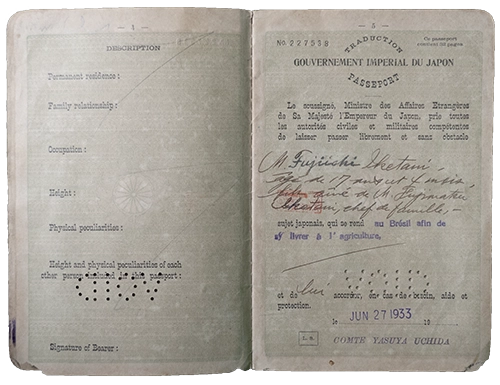 — 4 —
DESCRIPTION
Permanent residence :
Family relationship :
Occupation :
Height :
Physical peculiarities :
Height and physical peculiarities of each
other person included in the passport :
Signature of Bearer :
— 5 —
No. 227558
Ce passeport
contient 32 pages
TRADUCTION
GOUVERNEMENT IMPERIAL DU JAPON
PASSEPORT
Le soussigné, Ministre des Affaires Etrangères
de Sa Majesté l'Empereur du Japon, prie toutes
les autorités civiles et militaires compétentes
de laisser passer librement et sans obstacle
M. Fujiishi Iketani,
age de 17 ans et 4 mois,
ainé de M.
Iketani, chef de famille,-
sujet japonais, qui se rend au Brésil afin de
s'y livrer à l'agriculture,
et de lui accorder, en cas de besoin, aide et
protection.
le JUN 27 1933 19
L. S. COMTE YASUYA UCHIDA